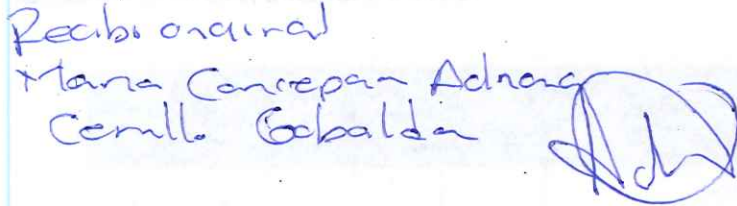 Recibi original
Maria Concepcion Adriana
Cerrillo Gabaldon